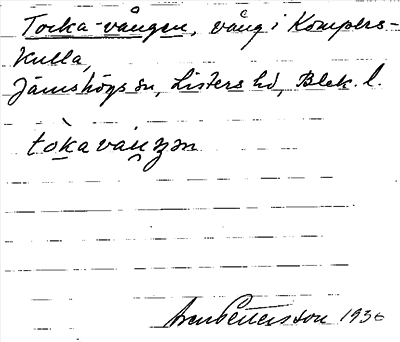 Tocka-vången, vång i Kompers-
kulla,
Jämshögs sn, Listers hd, Blek. l.
tòkaváŋŋən
Pettersson 1936